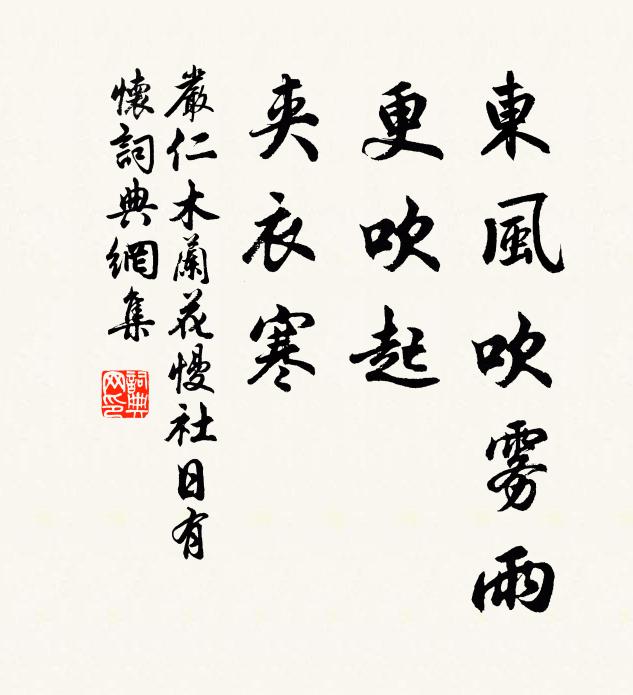 東風吹雾雨
更吹起
夹衣寒
嚴仁木蘭花慢社日有
懷詞典網集
詞典网印